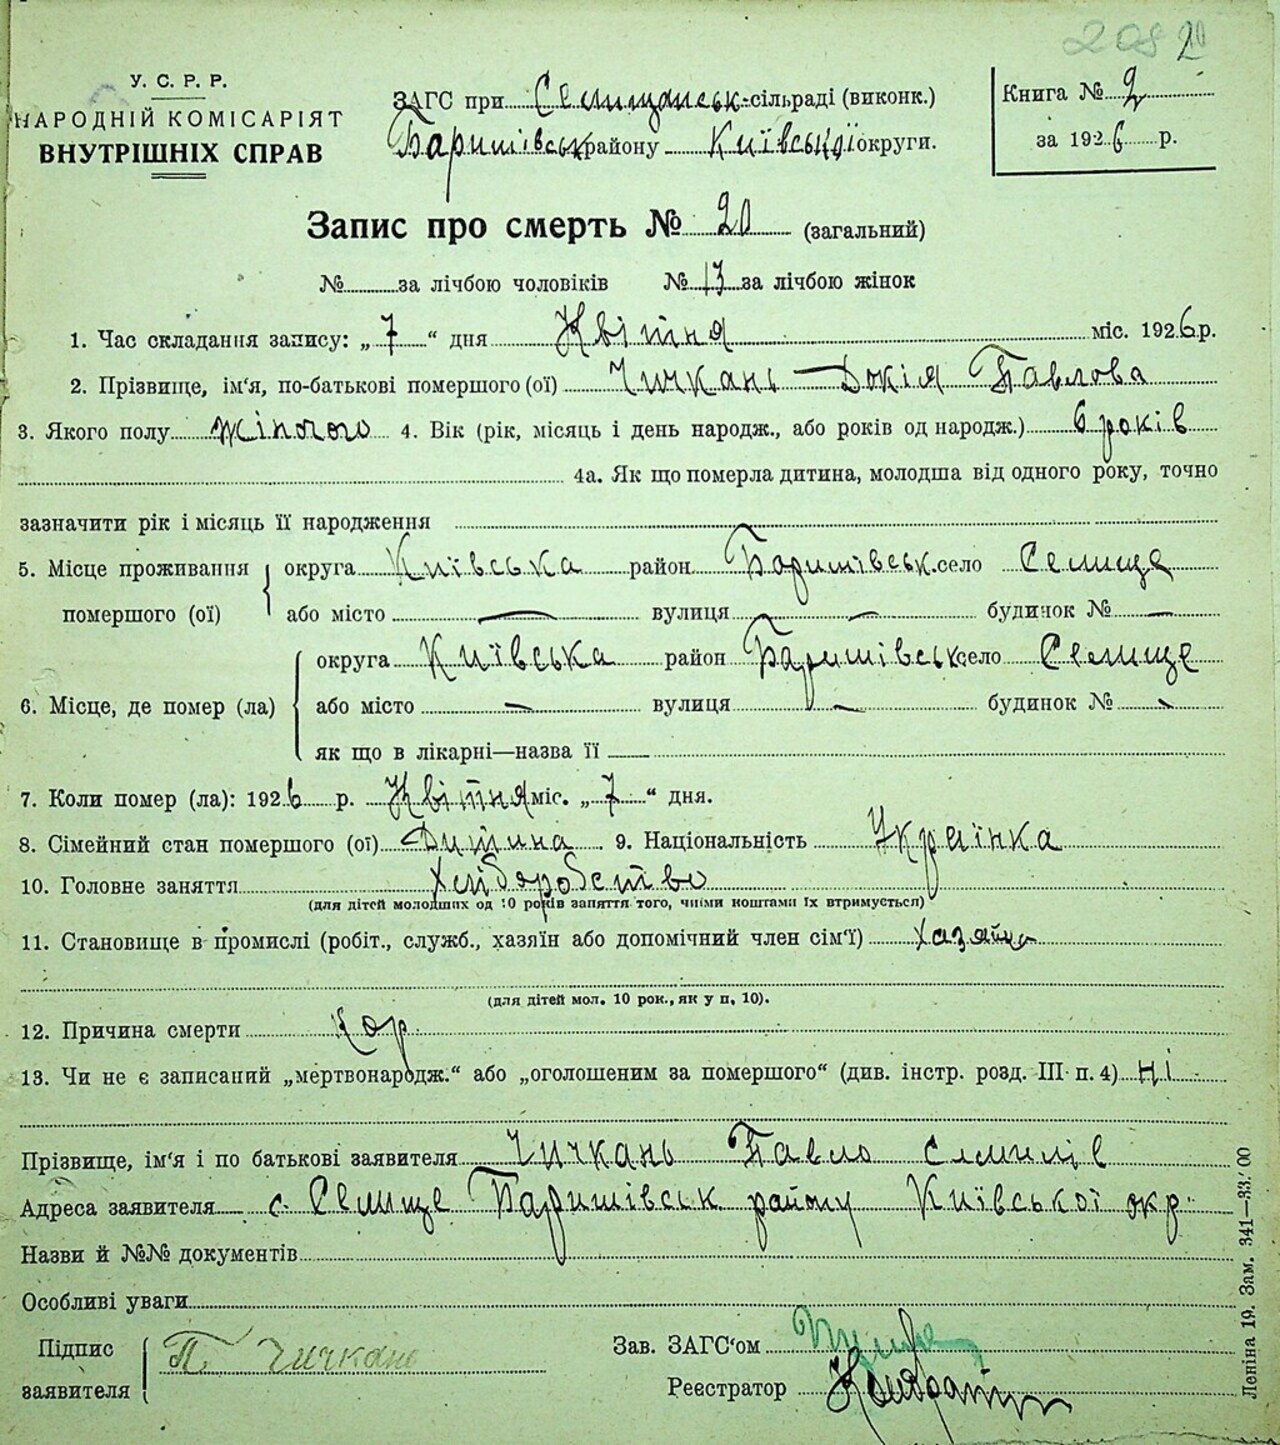 208 20
У. С. Р. Р.
НАРОДНІЙ КОМІСАРІЯТ
ВНУТРІШНІХ СПРАВ
ЗАГС при Селищанськ. сільраді (виконк.)
Баришівськ району Київської округи.
Книга № 2
за 1926 р.
Запис про смерть № 20 (загальний)
№ за лічбою чоловіків № 13 за лічбою жінок
1. Час складання запису: „7“ дня Квітня міс. 1926 р.
2. Прізвище, ім'я, по-батькові помершого (ої) Чичкань Докія Павлова
3. Якого полу жіночого 4. Вік (рік, місяць і день народж., або років од народж.) 6 років
4а. Як що померла дитина, молодша від одного року, точно
зазначити рік і місяць її народження
5. Місце проживання помершого (ої) округа Київська район Баришівськ. село Селище
або місто — вулиця — будинок № —
6. Місце, де помер (ла) округа Київська район Баришівськ село Селище
або місто — вулиця — будинок № —
як що в лікарні—назва її
7. Коли помер (ла): 1926 р. Квітня міс. „7“ дня.
8. Сімейний стан помершого (ої) Дитина. 9. Національність Українка
10. Головне заняття Хліборобство
(для дітей молодших од 10 років заняття того, чиїми коштами їх втримується)
11. Становище в промислі (робіт., служб., хазяїн або допомічний член сім'ї) хазяїн
(для дітей мол. 10 рок., як у п. 10).
12. Причина смерти Кор
13. Чи не є записаний „мертвонародж.“ або „оголошеним за помершого“ (див. інстр. розд. III п. 4) ні
Прізвище, ім'я і по батькові заявителя Чичкань Павло
Адреса заявителя с. Селище Баришівськ району Київської окр.
Назви й №№ документів
Особливі уваги
Підпис заявителя П. Чичкань
Зав. ЗАГС'ом
Реєстратор
Леніна 19. Зам. 341—33.'00